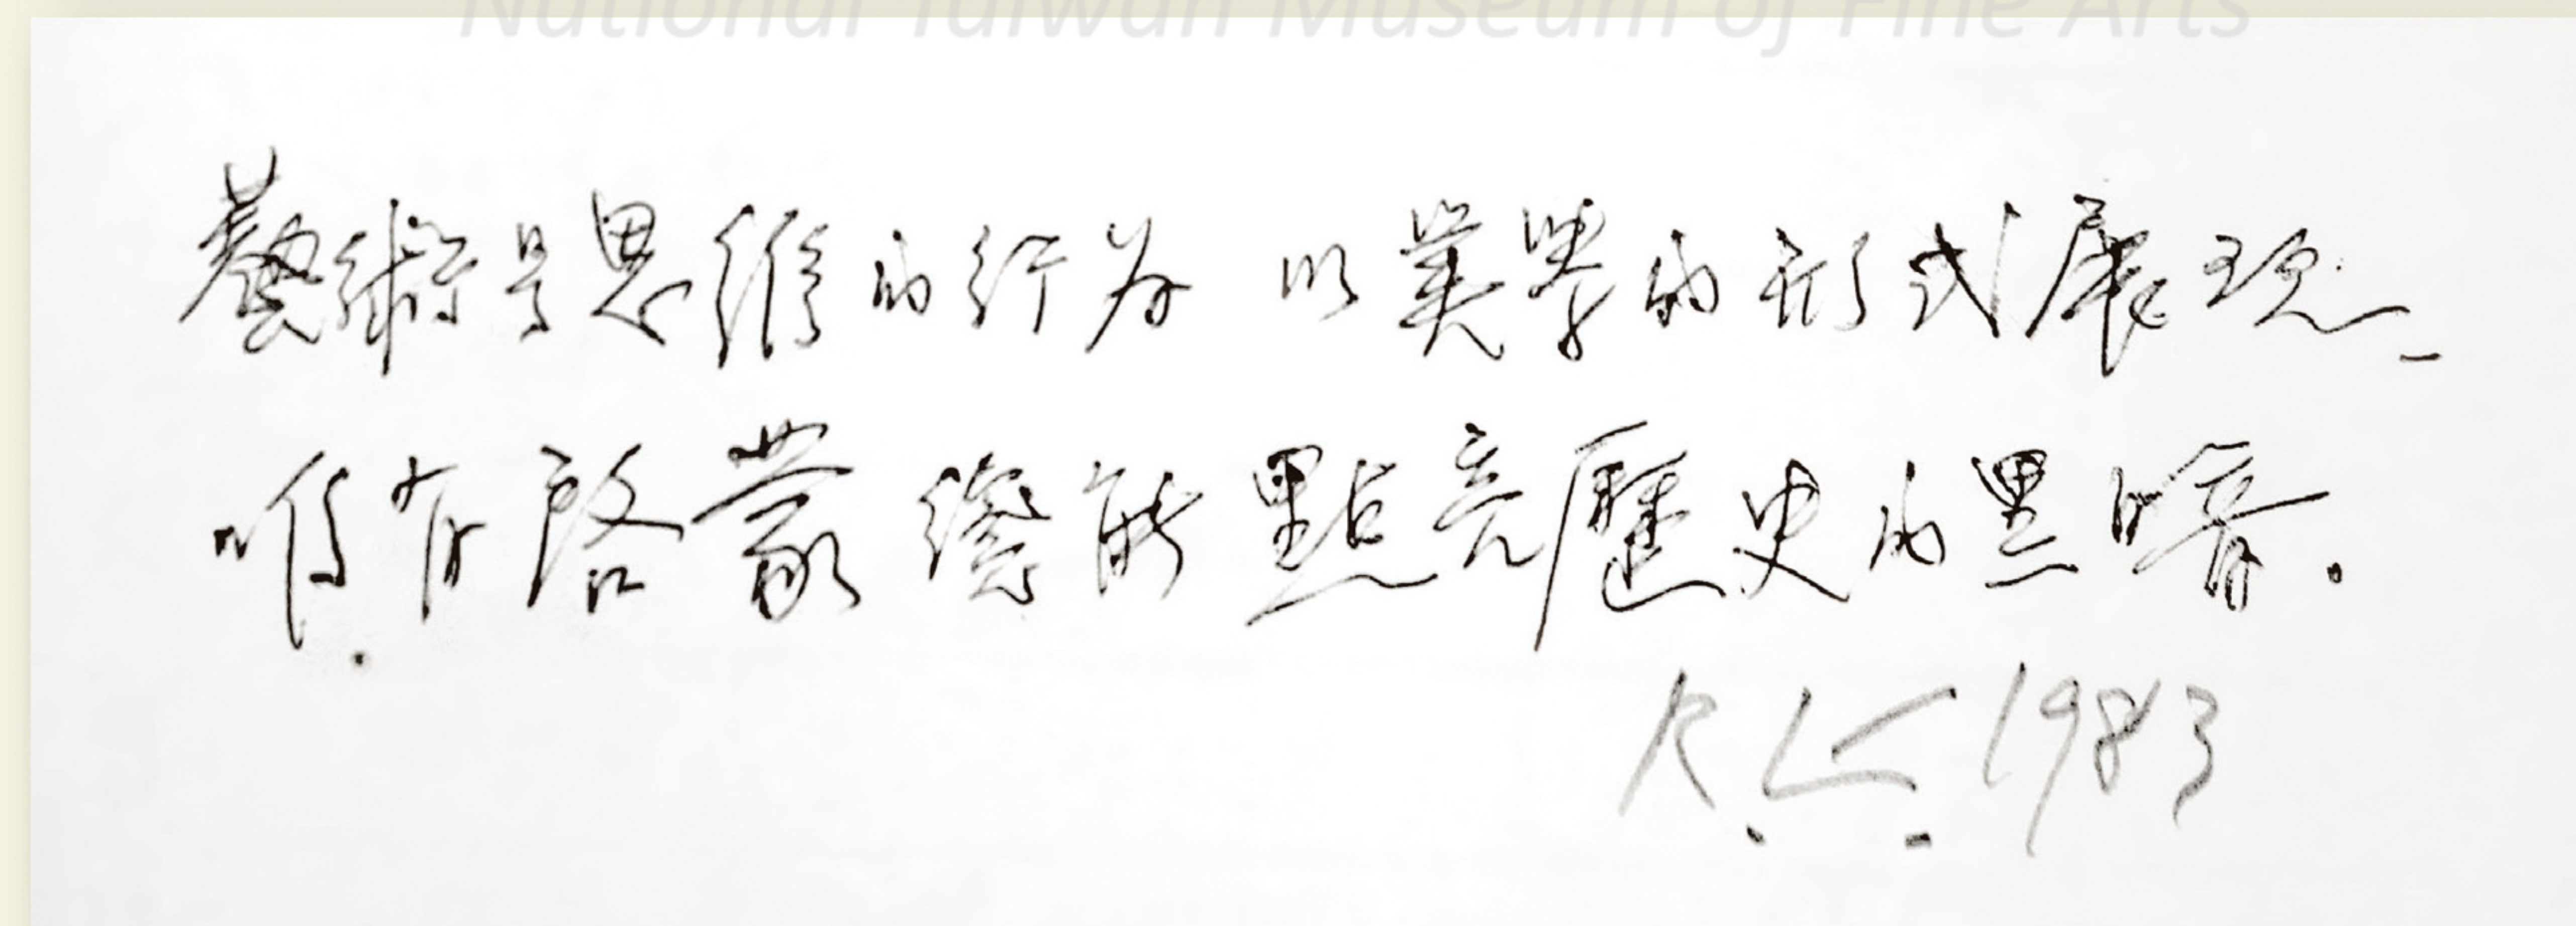 National Taiwan Museum of Fine Arts
藝術是思維的行為 以美學的形式展現_
唯有啓蒙纔能點亮歷史的黑暗.
R.L. 1983